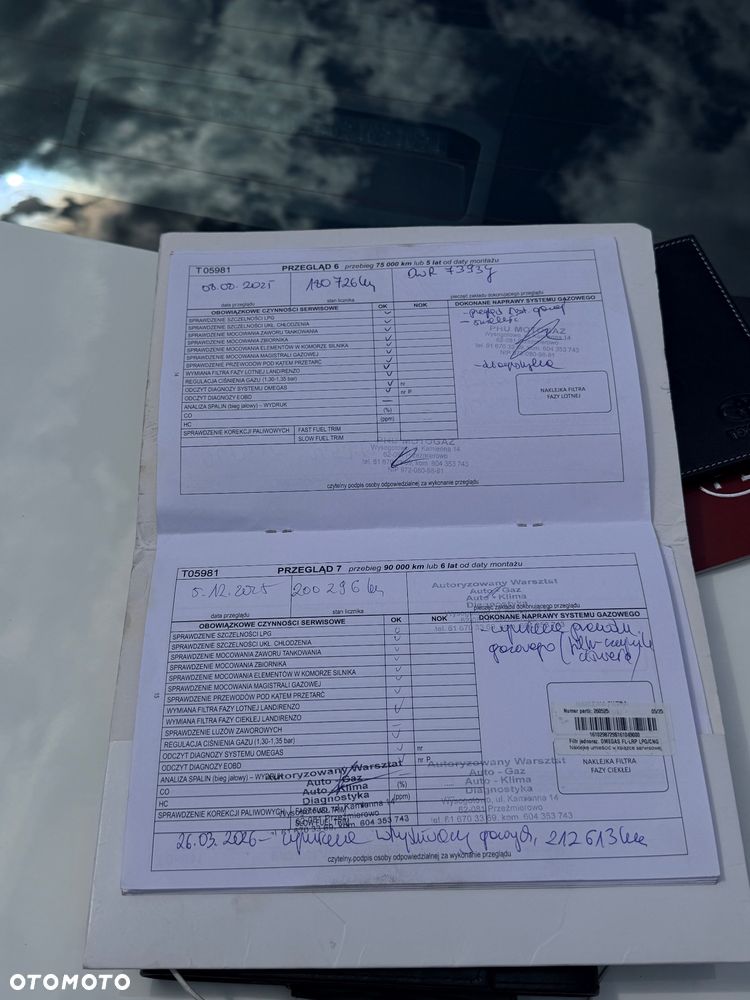 T05981 PRZEGLĄD 6 przebieg 75 000 km lub 5 lat od daty montażu
08.08.2025 180 726 km DWR 73934
data przeglądu stan licznika pieczęć zakładu dokonującego przeglądu
OBOWIĄZKOWE CZYNNOŚCI SERWISOWE OK NOK DOKONANE NAPRAWY SYSTEMU GAZOWEGO
SPRAWDZENIE SZCZELNOŚCI LPG
SPRAWDZENIE SZCZELNOŚCI UKŁ. CHŁODZENIA
SPRAWDZENIE MOCOWANIA ZAWORU TANKOWANIA
SPRAWDZENIE MOCOWANIA ZBIORNIKA
SPRAWDZENIE MOCOWANIA ELEMENTÓW W KOMORZE SILNIKA
SPRAWDZENIE MOCOWANIA MAGISTRALI GAZOWEJ
SPRAWDZENIE PRZEWODÓW POD KĄTEM PRZETARĆ
WYMIANA FILTRA FAZY LOTNEJ LANDIRENZO
REGULACJA CIŚNIENIA GAZU (1,30-1,35 bar)
ODCZYT DIAGNOZY SYSTEMU OMEGAS nr
ODCZYT DIAGNOZY EOBD nr P
ANALIZA SPALIN (bieg jałowy) – WYDRUK
CO (%)
HC (ppm)
SPRAWDZENIE KOREKCJI PALIWOWYCH FAST FUEL TRIM
SLOW FUEL TRIM
PHU MOTOGAZ
- diagnostyka
NAKLEJKA FILTRA
FAZY LOTNEJ
PHU MOTOGAZ
Wysogotowo, ul. Kamienna 14
62-081 Przeźmierowo
tel. 61 670 33 69, kom. 604 353 743
NIP 972-080-58-81
czytelny podpis osoby odpowiedzialnej za wykonanie przeglądu
T05981 PRZEGLĄD 7 przebieg 90 000 km lub 6 lat od daty montażu
5.12.2025 200 296 km
Autoryzowany Warsztat
Auto - Gaz
Auto - Klima
Diagnostyka
data przeglądu stan licznika pieczęć zakładu dokonującego przeglądu
OBOWIĄZKOWE CZYNNOŚCI SERWISOWE OK NOK DOKONANE NAPRAWY SYSTEMU GAZOWEGO
SPRAWDZENIE SZCZELNOŚCI LPG
SPRAWDZENIE SZCZELNOŚCI UKŁ. CHŁODZENIA
SPRAWDZENIE MOCOWANIA ZAWORU TANKOWANIA
SPRAWDZENIE MOCOWANIA ZBIORNIKA
SPRAWDZENIE MOCOWANIA ELEMENTÓW W KOMORZE SILNIKA
SPRAWDZENIE MOCOWANIA MAGISTRALI GAZOWEJ
SPRAWDZENIE PRZEWODÓW POD KĄTEM PRZETARĆ
WYMIANA FILTRA FAZY LOTNEJ LANDIRENZO
WYMIANA FILTRA FAZY CIEKŁEJ LANDIRENZO
SPRAWDZENIE LUZÓW ZAWOROWYCH
REGULACJA CIŚNIENIA GAZU (1,30-1,35 bar)
ODCZYT DIAGNOZY SYSTEMU OMEGAS nr
ODCZYT DIAGNOZY EOBD nr P
ANALIZA SPALIN (bieg jałowy) – WYDRUK
CO (%)
HC (ppm)
SPRAWDZENIE KOREKCJI PALIWOWYCH FAST FUEL TRIM
SLOW FUEL TRIM
gazowego
Numer partii: 260525 05/25
Filtr jednoraz. OMEGAS FL-LRP LPG/CNG
Naklejkę umieścić w książce serwisowej
NAKLEJKA FILTRA
FAZY CIEKŁEJ
Autoryzowany Warsztat
Auto - Gaz
Auto - Klima
Diagnostyka
Autoryzowany Warsztat
Auto - Gaz
Auto - Klima
Diagnostyka
Wysogotowo, ul. Kamienna 14
62-081 Przeźmierowo
tel. 61 670 33 69, kom. 604 353 743
26.03.2026 - wtryskiwaczy gazowych, 212 613 km
czytelny podpis osoby odpowiedzialnej za wykonanie przeglądu
OTOMOTO